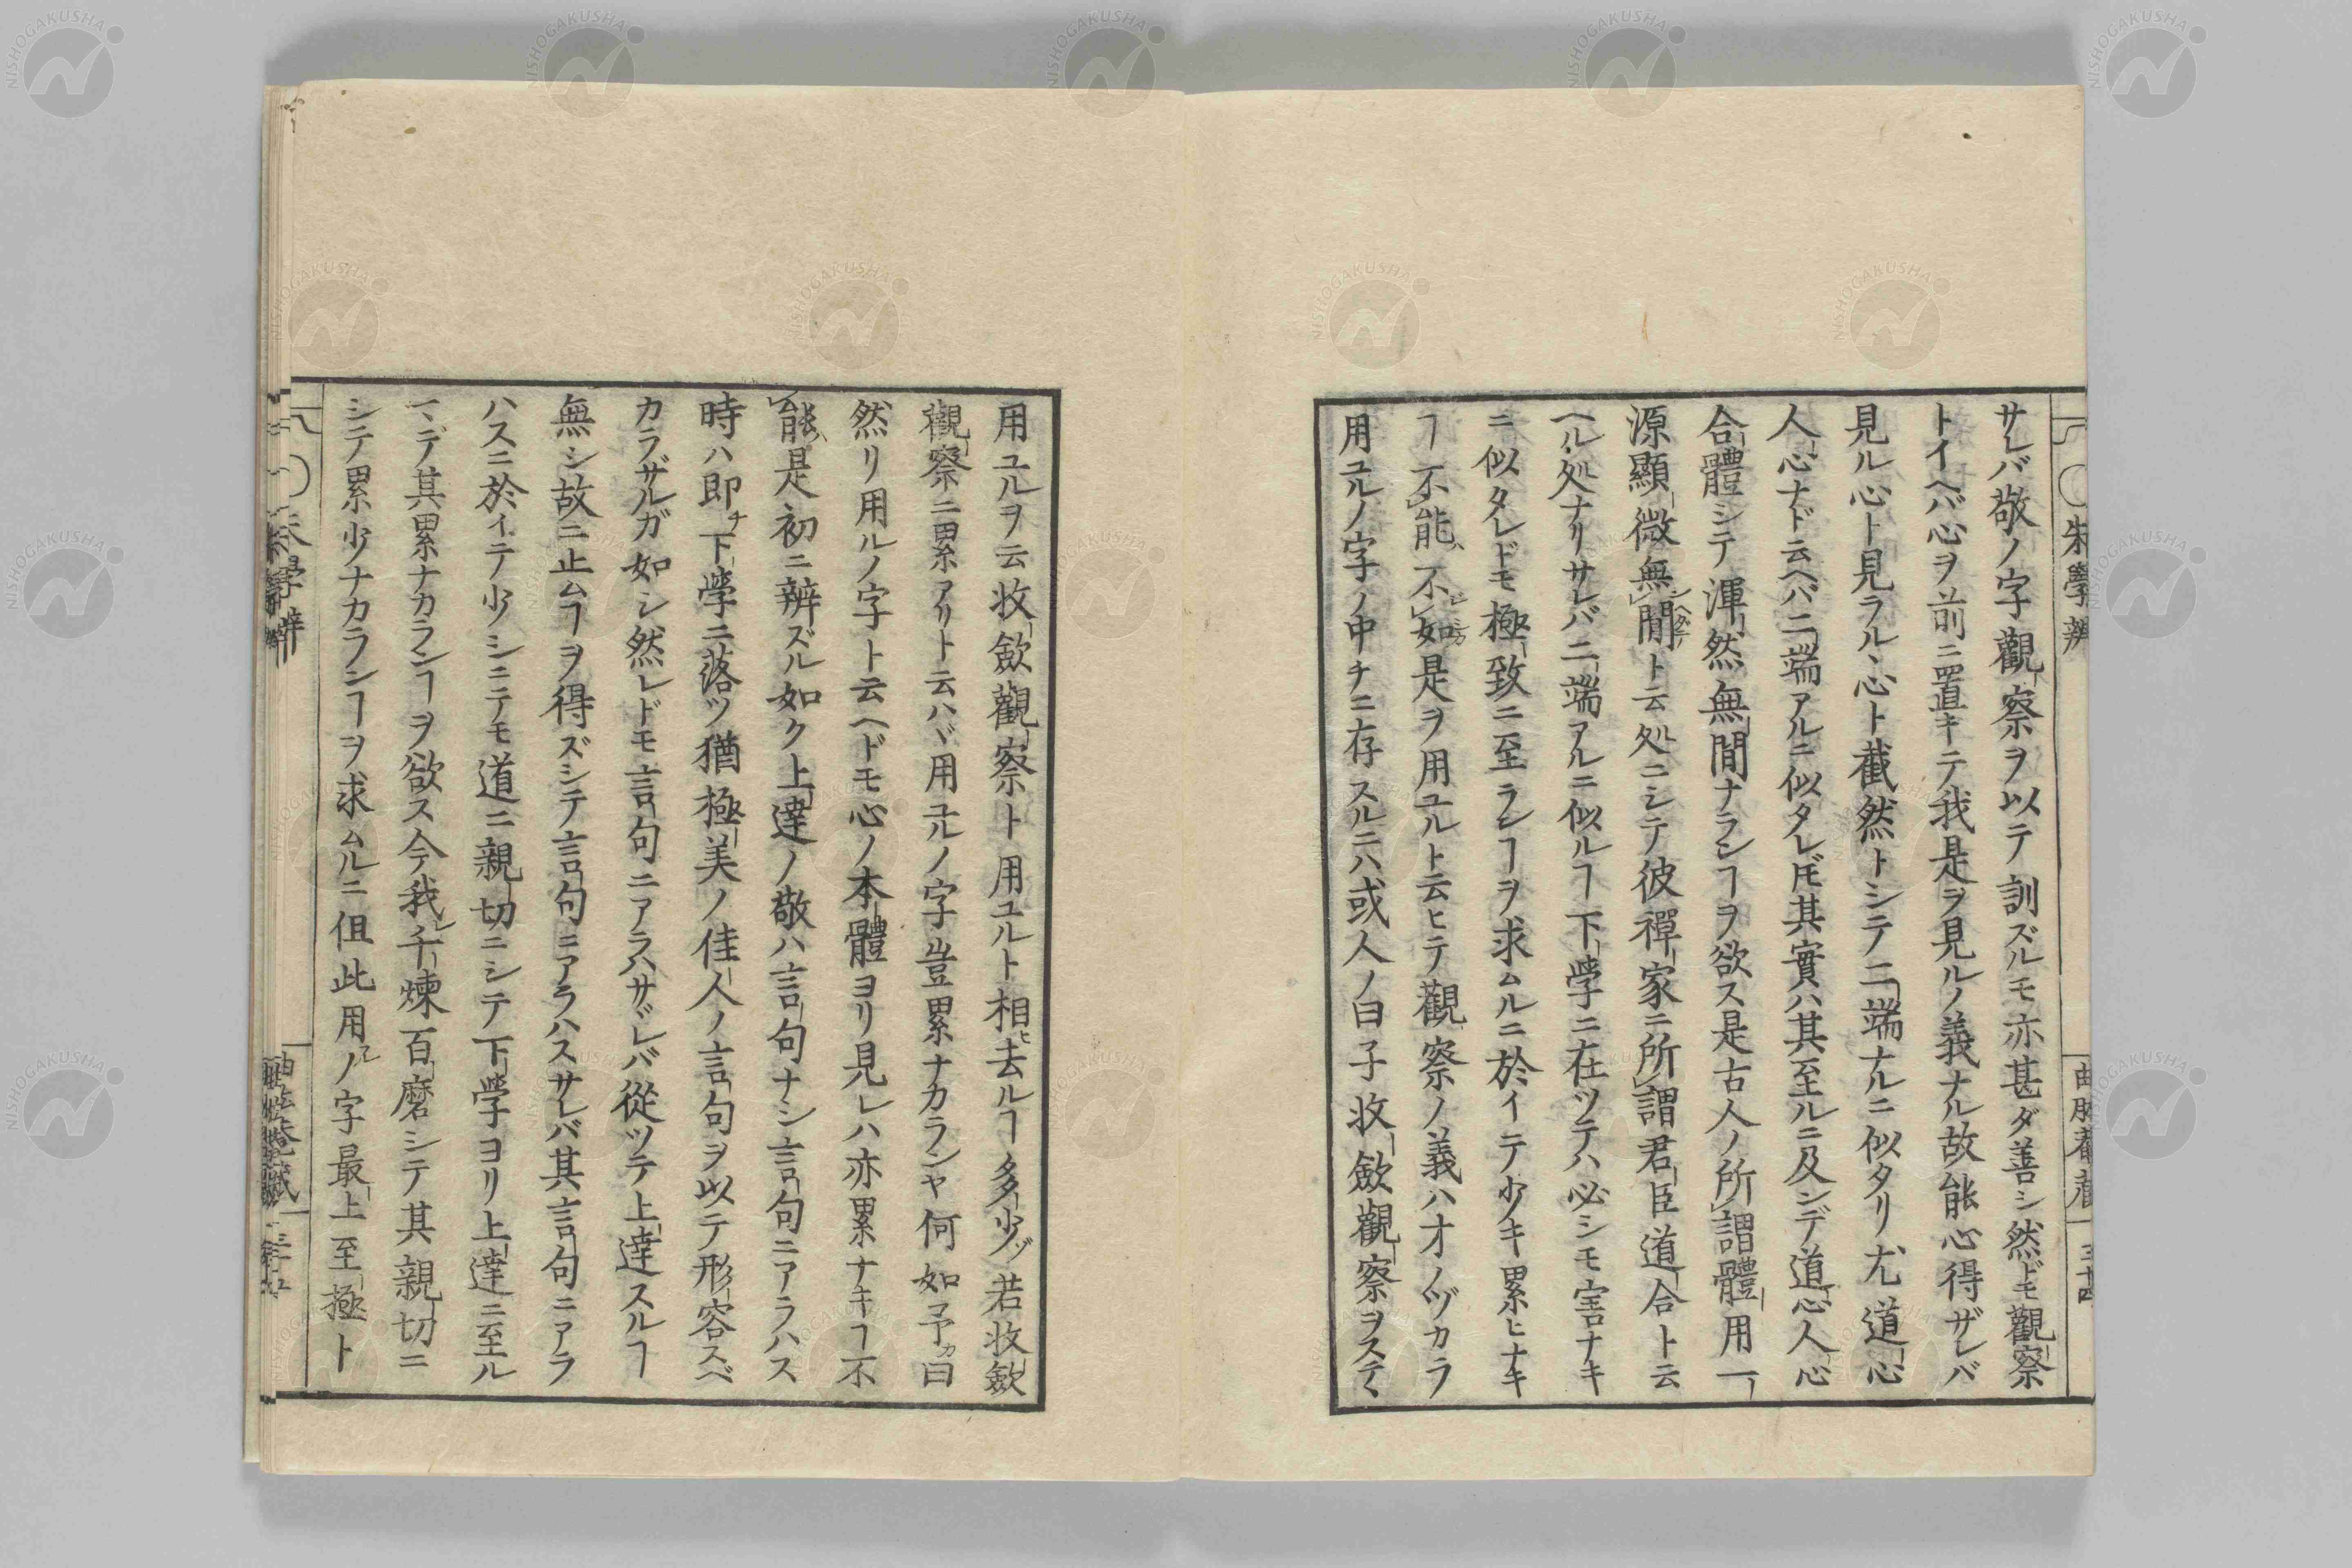 サレバ敬ノ字觀察ヲ以テ訓ズルモ亦甚ダ善シ然ドモ觀察
トイヘバ心ヲ前ニ置キテ我是ヲ見ルノ義ナル故能心得ザレバ
見ル心ト見ラルヽ心ト截然トシテ二端ナルニ似タリ尤道心
人心ナド云ヘバ二端アルニ似タレ𪜈其實ハ其至ルニ及ンデ道心人心
合體シテ渾然無間ナランヿヲ欲ス是古人ノ所謂體用一
源顯微無間ト云処ニシテ彼禪家ニ所謂君臣道合ト云
ヘル処ナリサレバ二端アルニ似ルヿ下學ニ在ツテハ必シモ害ナキ
ニ似タレドモ極致ニ至ランヿヲ求ムルニ於イテ少キ累ヒナキ
ヿ不能不如是ヲ用ユルト云ヒテ觀察ノ義ハオノヅカラ
用ユルノ字ノ中チニ存スルニハ或人ノ曰子收斂觀察ヲステヽ
朱學辨
三十四
用ユルヲ云收斂觀察ト用ユルト相去ルヿ多少ゾ若收斂
觀察ニ累アリト云ハヾ用ユルノ字豈累ナカランヤ何如予曰
然リ用ルノ字ト云ヘドモ心ノ本體ヨリ見レハ亦累ナキヿ不
能是初ニ辨ズル如ク上達ノ敬ハ言句ナシ言句ニアラハス
時ハ即チ下學ニ落ツ猶極美ノ佳人ノ言句ヲ以テ形容スベ
カラザルガ如シ然レドモ言句ニアラハサヾレバ從ツテ上達スルヿ
無シ故ニ止ムヿヲ得ズシテ言句ニアラハスサレバ其言句ニアラ
ハスニ於イテ少シニテモ道ニ親切ニシテ下學ヨリ上達ニ至ル
マデ其累ナカランヿヲ欲ス今我レ千煉百磨シテ其親切ニ
シテ累少ナカランヿヲ求ムルニ但此用ユノ字最上至極ト